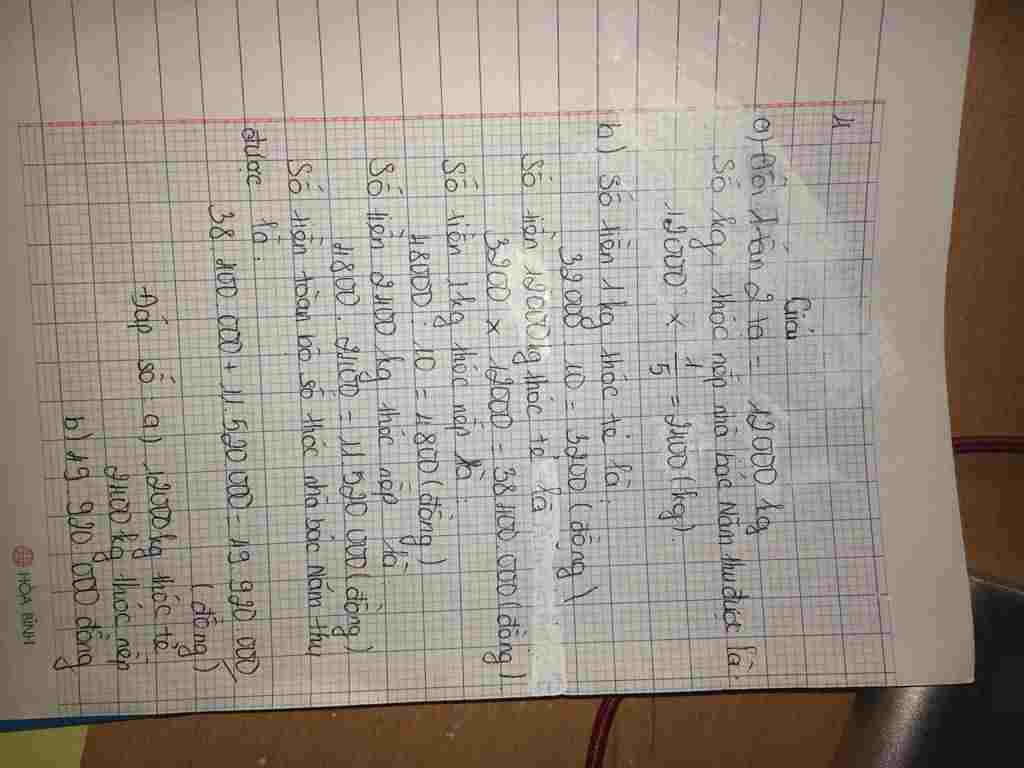 1
Giải
a) Đổi 1 tấn 2 tạ = 12000 kg
Số kg thóc nếp nhà bác Năm thu được là:
12000 x 1/5 = 2400 (kg)
b) Số tiền 1 kg thóc tẻ là:
32000 : 10 = 3200 (đồng)
Số tiền 12000kg thóc tẻ là:
3200 x 12000 = 38 400 000 (đồng)
Số tiền 1kg thóc nếp là:
48000 : 10 = 4800 (đồng)
Số tiền 2400 kg thóc nếp là:
4800 . 2400 = 11 520 000 (đồng)
Số tiền toàn bộ số thóc nhà bác Năm thu
được là:
38 400 000 + 11.520 000 = 49 920 000
(đồng)
Đáp số: a) 12000kg thóc tẻ
2400 kg thóc nếp
b) 49 920 000 đồng
HÒA BÌNH